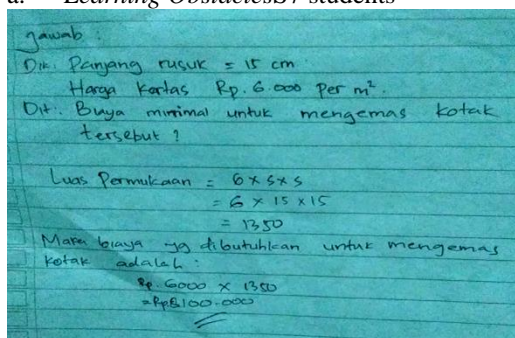 a. Learning ObstaclesS7 students
Jawab :
Dik. Panjang rusuk = 15 cm
Harga Kertas Rp. 6.000 Per m².
Dit. Biaya minimal untuk mengemas kotak
tersebut ?
Luas Permukaan = 6 x s x s
= 6 x 15 x 15
= 1350
Maka biaya yg dibutuhkan untuk mengemas
kotak adalah :
Rp. 6000 x 1350
= Rp8.100.000